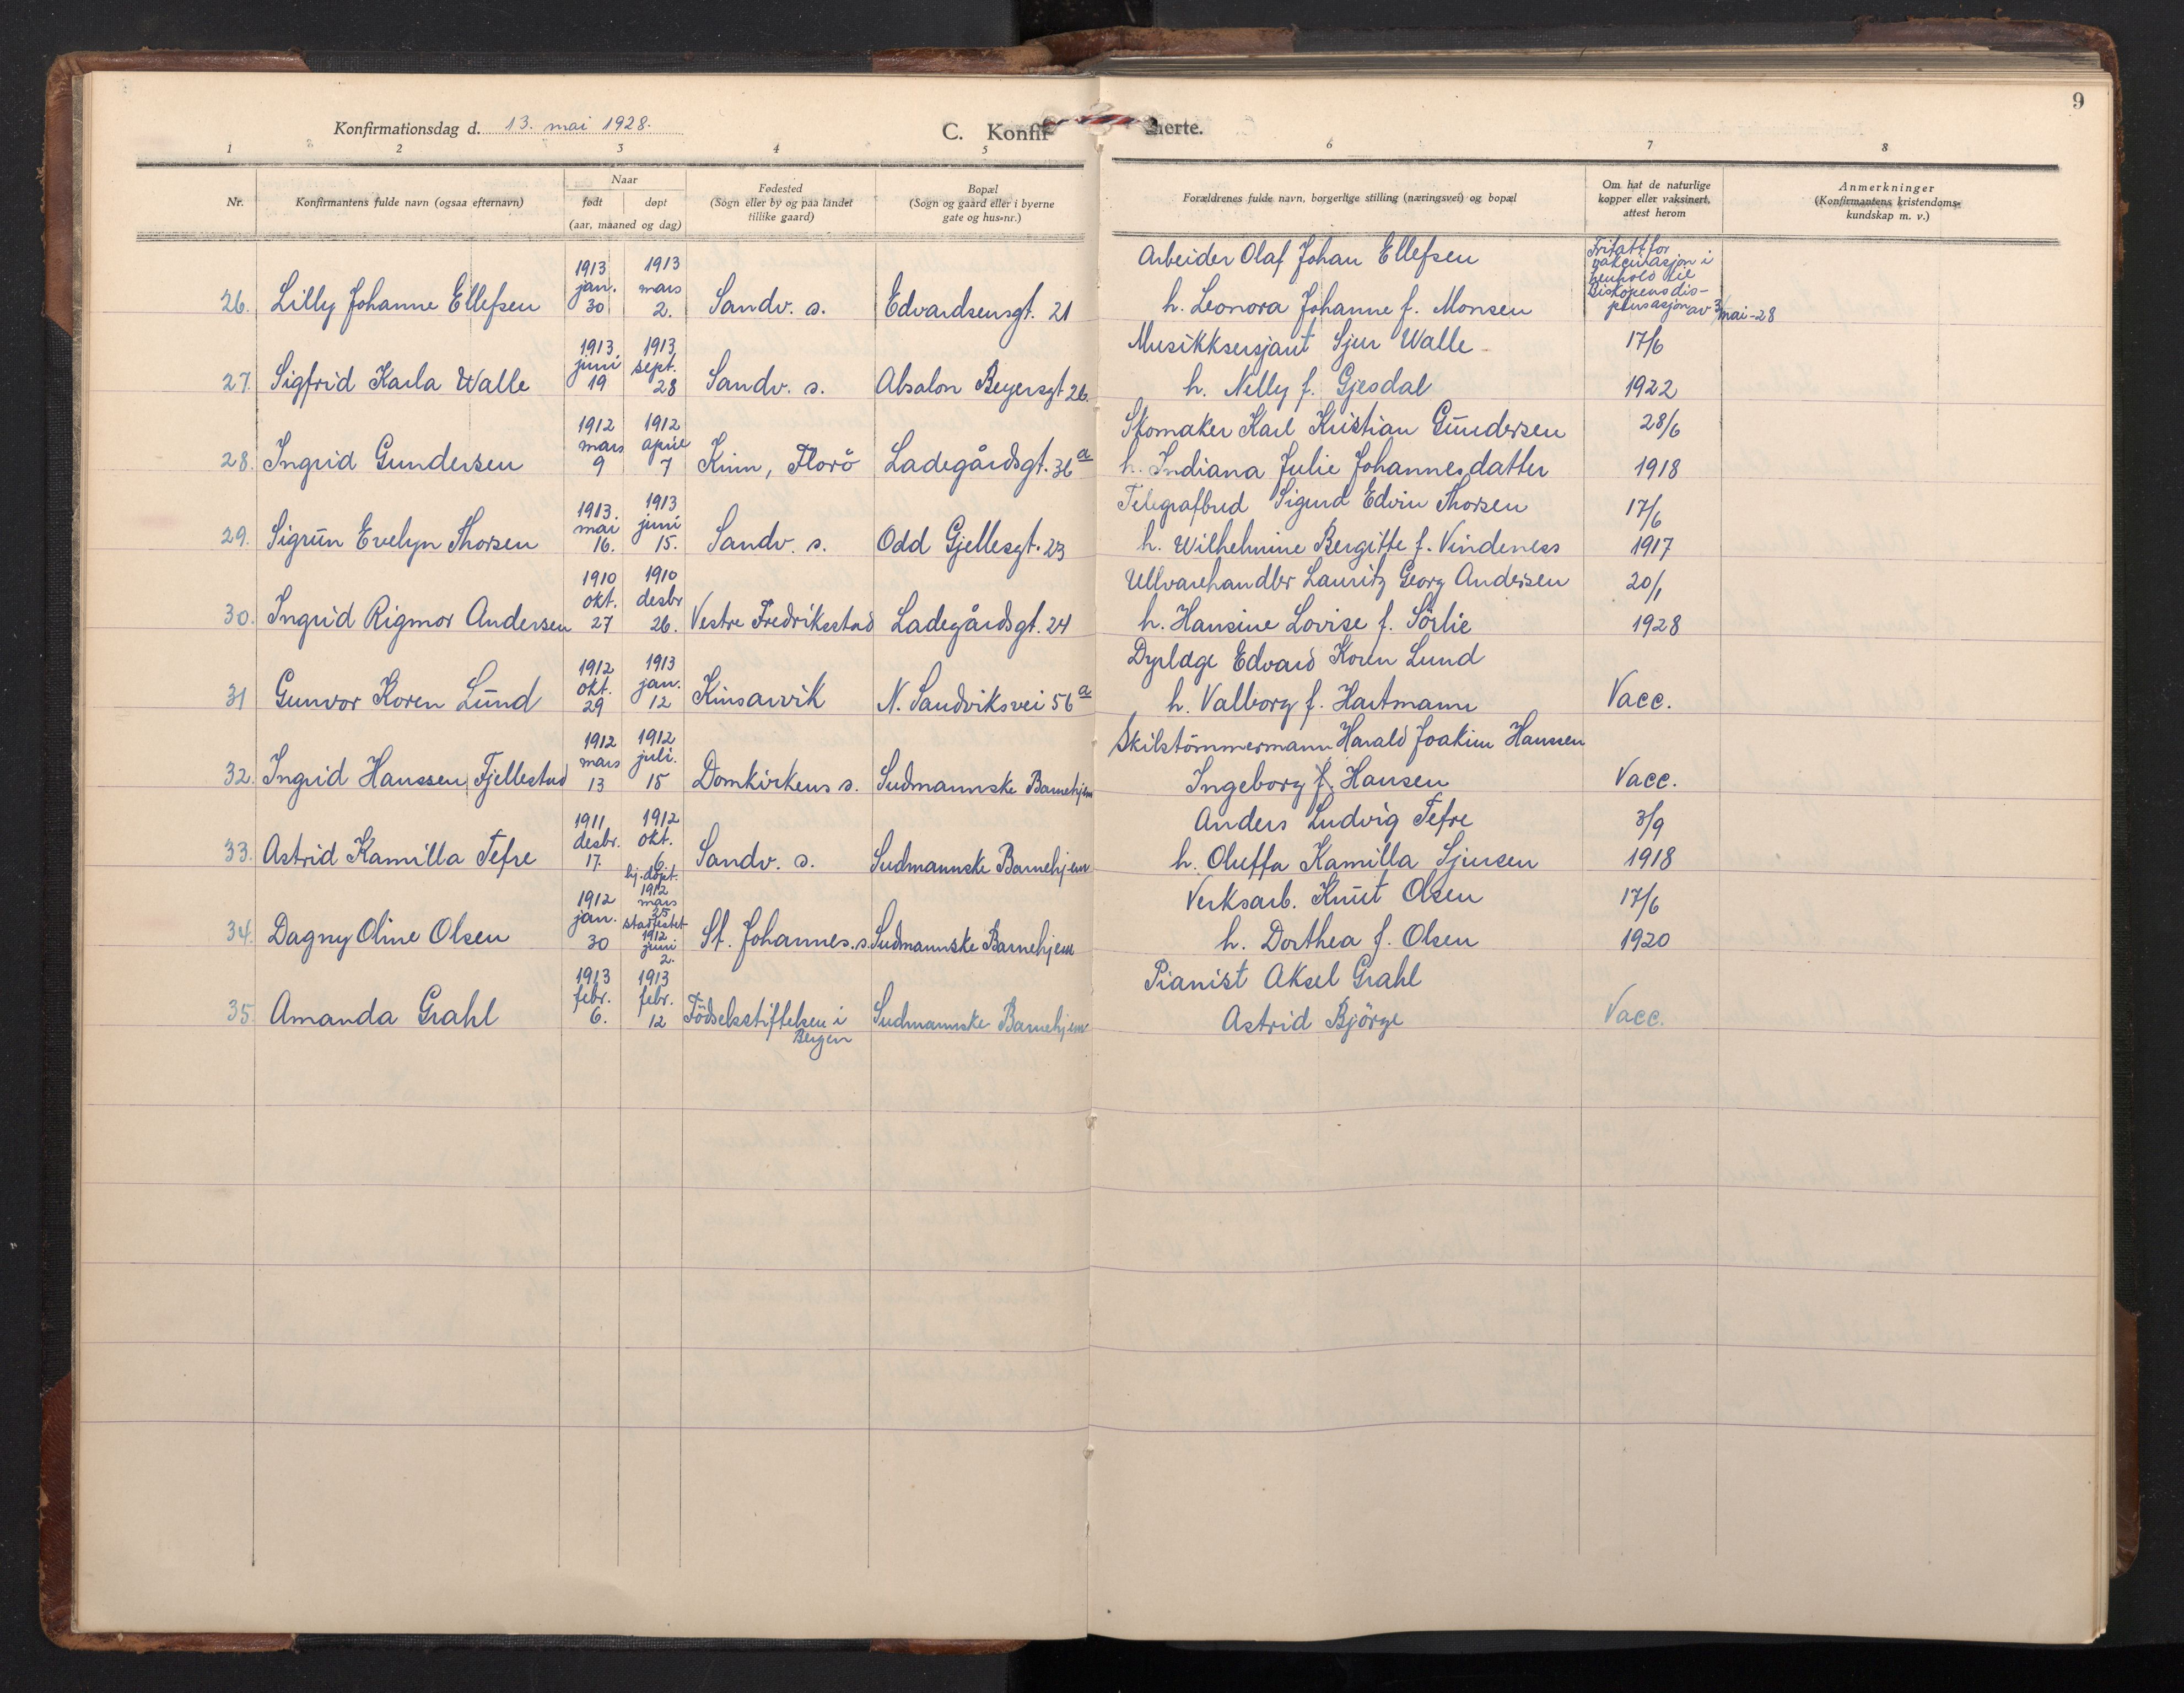 9
Konfirmationsdag d. 13. mai 1928.
C. Konfir
merte.
1 2 3 4 5 6 7 8
Nr.
Konfirmantens fulde navn (ogsaa efternavn)
Naar
født døpt
(aar, maaned og dag)
Fødested
(Sogn eller by og paa landet
tillike gaard)
Bopæl
(Sogn og gaard eller i byerne
gate og hus-nr.)
Forældrenes fulde navn, borgerlige stilling (næringsvei) og bopæl
Om hat de naturlige
kopper eller vaksinert,
attest herom
Anmerkninger
(Konfirmantens kristendoms-
kundskap m. v.)
1913 1913 Arbeider Olaf Johan Ellefsen Fritatt for
jan. mars vaksinasjon i
henhold til
Biskopens dis-
26. Lilly Johanne Ellefsen 30 2. Sandv. s. Edvardsensgt. 21 h. Leonora Johanne f. Monsen pensasjon av 3/mai-28
1913. 1913 Musikksersjant Sjur Walle 17/6
juni sept.
27. Sigfrid Karla Walle 19 28 Sandv. s. Absalon Beyersgt 26. h. Nelly f. Gjesdal 1922
1912 1912 Skomaker Karl Kristian Gundersen 28/6
mars april
28. Ingrid Gundersen 9 7 Kinn, Florö Ladegårdsgt. 36a h. Indiana Julie Johannesdatter 1918
1913. 1913 Telegrafbud Sigurd Edvin Thorsen 17/6
mai juni
29. Sigrun Evelyn Thorsen 16. 15. Sandv. s. Odd Gjellesgt. 23 h. Wilhelmine Bergitte f. Vindeness 1917
1910 1910 Ullvarehandler Lauritz Georg Andersen 20/1
okt. desbr
30. Ingrid Rigmor Andersen 27 26. Vestre Fredriksstad Ladegårdsgt. 24 h. Hansine Lovise f. Sörlie 1928
1912 1913 Dyrlæge Edvard Koren Lund
okt. jan.
31 Gunvor Koren Lund 29 12 Kinsarvik N. Sandviksvei 56a h. Valborg f. Hartmann Vacc.
1912 1912 Skibstömmermann Harald Joakim Hanssen
mars juli.
32. Ingrid Hanssen Fjellestad 13 15 Domkirkens s. Sudmannske Barnehjem Ingeborg f. Hansen Vacc.
1911 1912 Anders Ludvig Tefre 3/9
desbr. okt.
33. Astrid Kamilla Tefre 17. 6. Sandv. s. Sudmannske Barnehjem h. Oluffa Kamilla Sjursen 1918
hj. döpt.
1912 1912 Verksarb. Knut Olsen 17/6
jan. mars
25
stadfestet
34. Dagny Oline Olsen 30 1912 St. Johannes. s. Sudmannske Barnehjem h. Dorthea f. Olsen 1920
juni
2.
1913 1913 Pianist Aksel Grahl
febr. febr.
35. Amanda Grahl 6. 12 Födselsstiftelsen i Sudmannske Barnehjem Astrid Björge Vacc.
Bergen